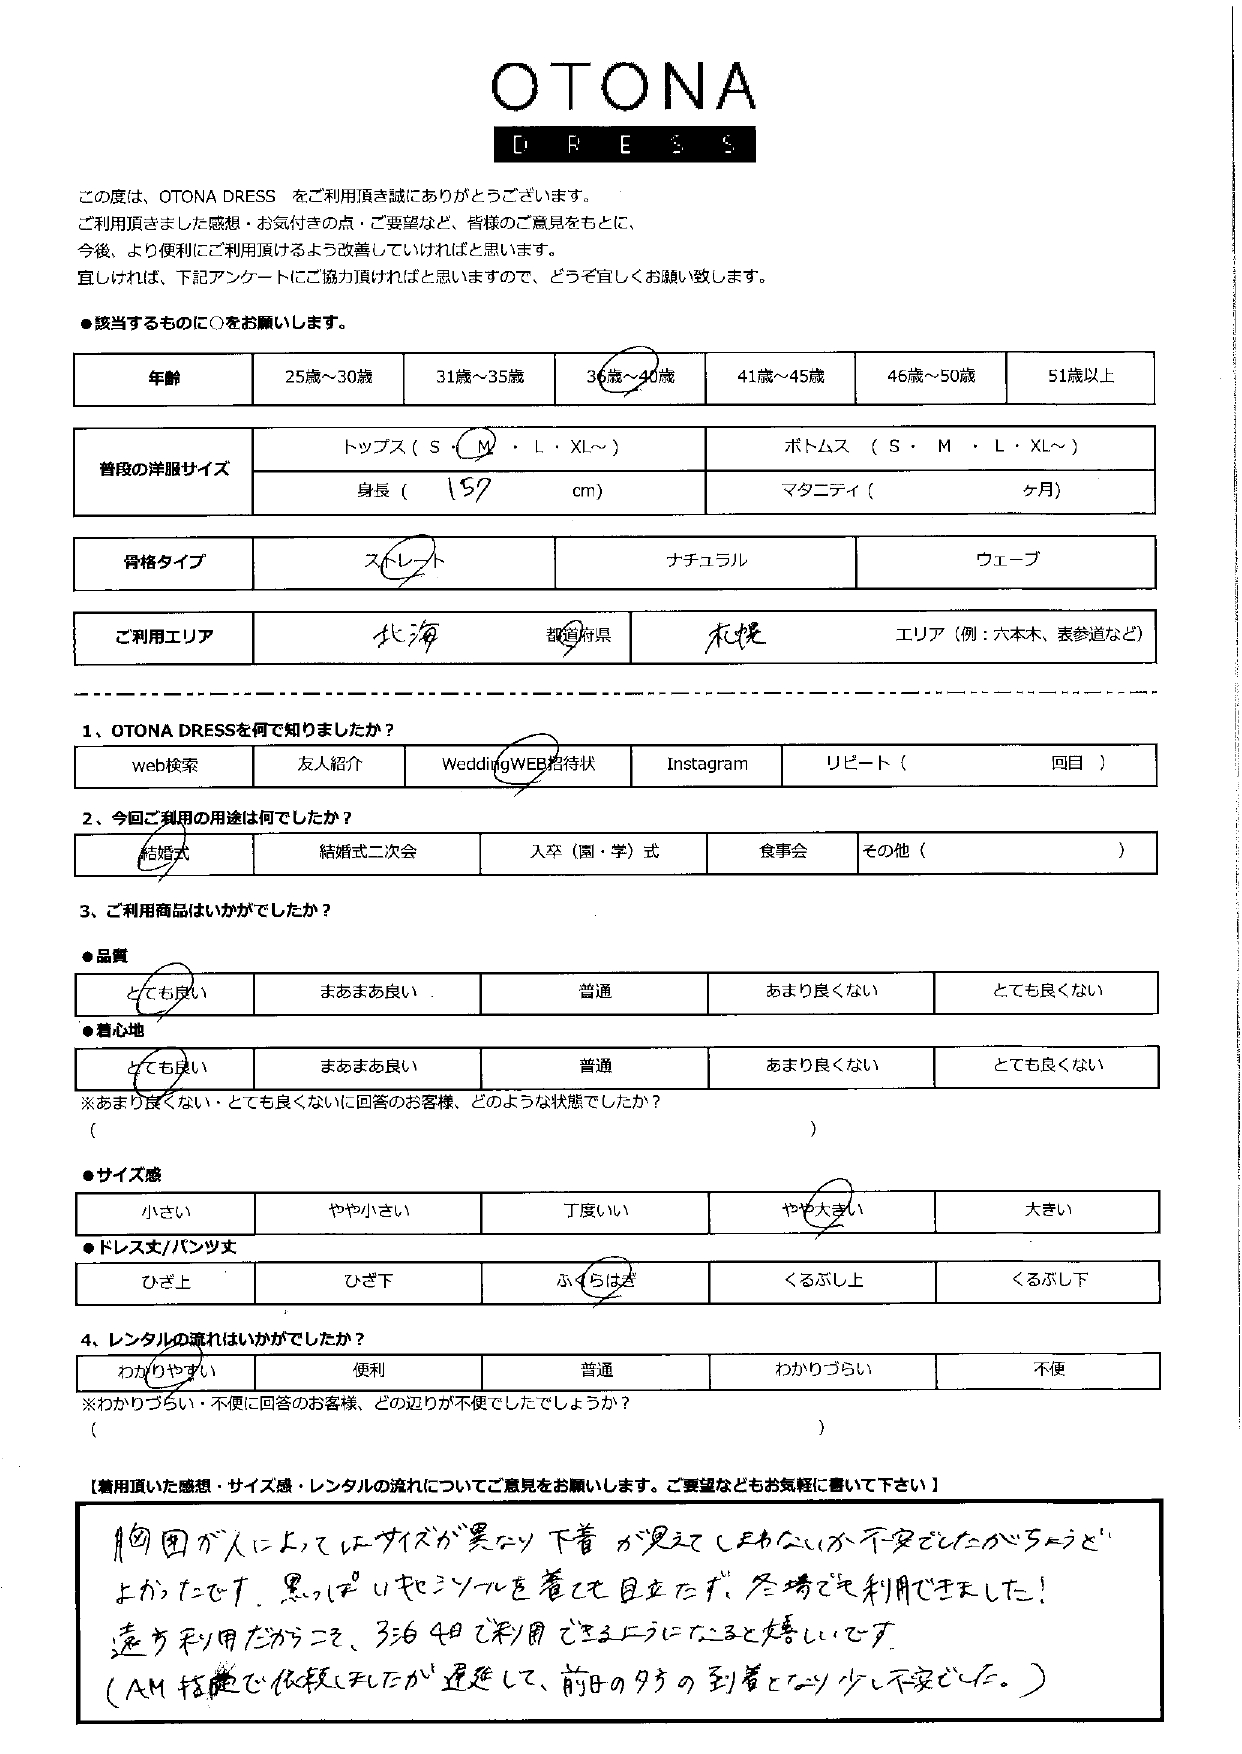 OTONA
DRESS
この度は、OTONA DRESS をご利用頂き誠にありがとうございます。
ご利用頂きました感想・お気付きの点・ご要望など、皆様のご意見をもとに、
今後、より便利にご利用頂けるよう改善していければと思います。
宜しければ、下記アンケートにご協力頂ければと思いますので、どうぞ宜しくお願い致します。
●該当するものに○をお願いします。
年齢 25歳～30歳 31歳～35歳 36歳～40歳 41歳～45歳 46歳～50歳 51歳以上
普段の洋服サイズ トップス ( S ・ M ・ L ・ XL～ ) ボトムス ( S ・ M ・ L ・ XL～ )
身長 ( 157 cm) マタニティ ( ヶ月)
骨格タイプ ストレート ナチュラル ウェーブ
ご利用エリア 北海 都道府県 札幌 エリア（例：六本木、表参道など）
1、OTONA DRESSを何で知りましたか？
web検索 友人紹介 WeddingWEB招待状 Instagram リピート（ 回目 ）
2、今回ご利用の用途は何でしたか？
結婚式 結婚式二次会 入卒（園・学）式 食事会 その他（ ）
3、ご利用商品はいかがでしたか？
●品質
とても良い まあまあ良い 普通 あまり良くない とても良くない
●着心地
とても良い まあまあ良い 普通 あまり良くない とても良くない
※あまり良くない・とても良くないに回答のお客様、どのような状態でしたか？
( )
●サイズ感
小さい やや小さい 丁度いい やや大きい 大きい
●ドレス丈/パンツ丈
ひざ上 ひざ下 ふくらはぎ くるぶし上 くるぶし下
4、レンタルの流れはいかがでしたか？
わかりやすい 便利 普通 わかりづらい 不便
※わかりづらい・不便に回答のお客様、どの辺りが不便でしたでしょうか？
( )
【着用頂いた感想・サイズ感・レンタルの流れについてご意見をお願いします。ご要望などもお気軽に書いて下さい】
胸囲が人によってはサイズが異なり下着が見えてしまわないか不安でしたがちょうど
よかったです。黒っぽいキャミソールを着ても目立たず、冬場でも利用できました！
遠方利用だからこそ、3泊4日で利用できるようになると嬉しいです。
(AM指定で依頼しましたが遅延して、前日の夕方の到着となり少し不安でした。)